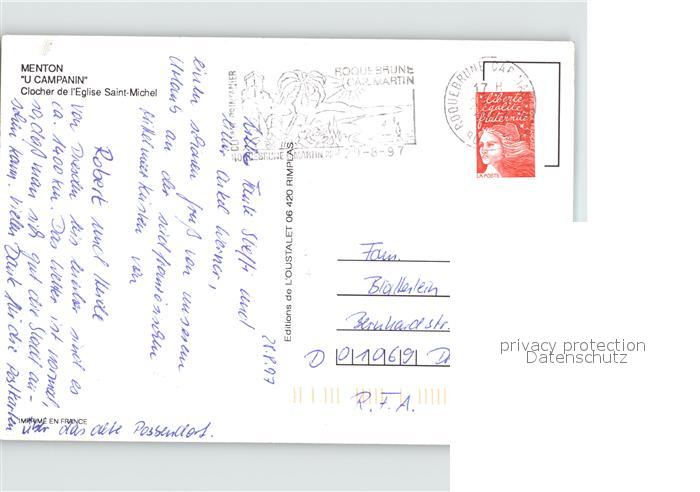 MENTON
"U CAMPANIN"
Clocher de l'Eglise Saint-Michel
ROQUEBRUNE
CAP MARTIN
29-8-97
ROQUEBRUNE CAP MARTIN
17 H
liberté
égalité
fraternité
LA POSTE
Editions de L'OUSTALET 06 420 RIMPLAS
28.8.97
Liebe Tante Steffi und
lieber Onkel Werner,
einen schönen Gruß von unserem
Urlaub an der südfranzösischen
Mittelmeerküste von
Robert und Heide
Von Dresden bis hierher sind es
ca. 1400 km. Das Wetter ist normal,
so, daß man sich gut die Stadt an-
sehen kann. Vielen Dank für die Postkarten
über das alte Possendorf.
Fam.
Bernhardstr.
D 01969 D
R.F.A.
IMPRIMÉ EN FRANCE
privacy protection
Datenschutz